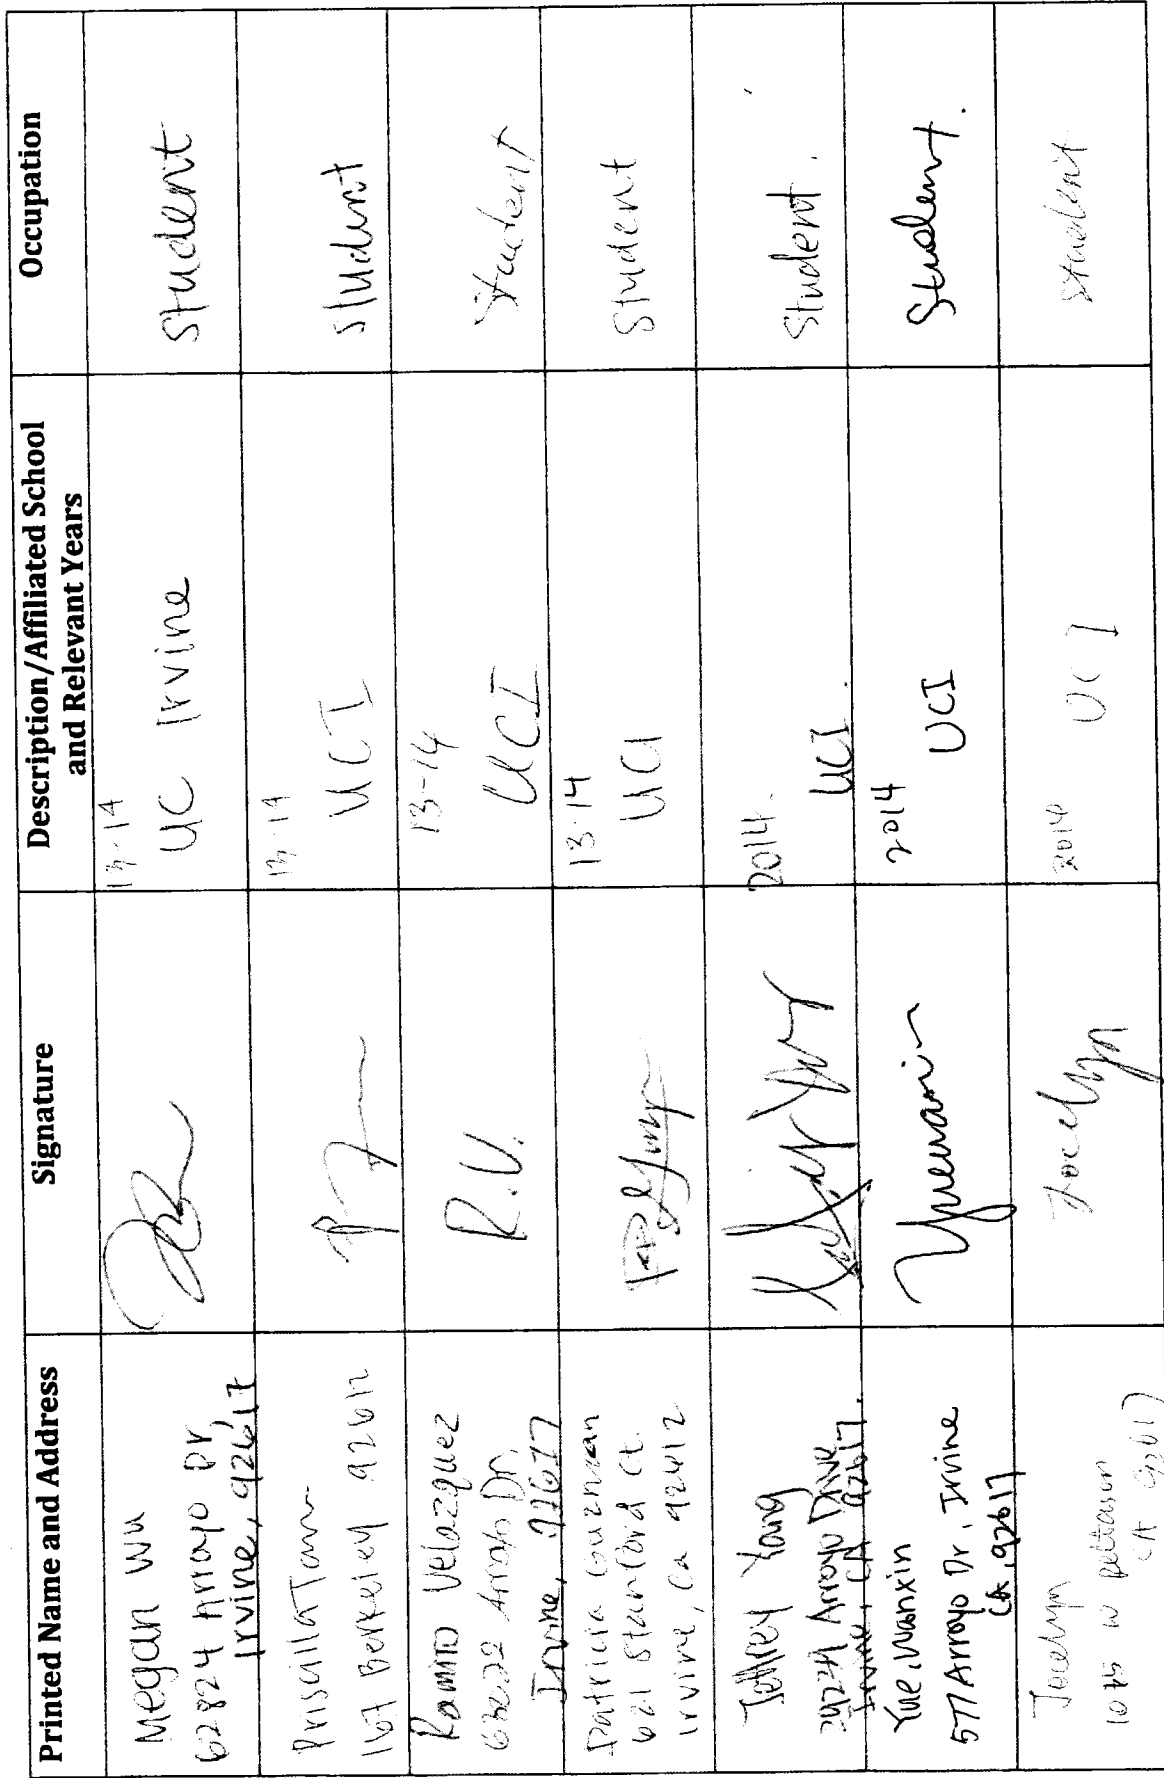 Printed Name and Address
Signature
Description/Affiliated School
and Relevant Years
Occupation
Megan Wu
62824 Arroyo Dr,
Irvine, 92617
13-14
UC Irvine
Student
Priscilla Tam
167 Berkeley 92612
13-14
UCI
student
Ramiro Velazquez
Arroyo Dr,
Irvine, 92617
R.V.
13-14
UCI
Student
Patricia Guzman
621 Stanford Ct.
Irvine, Ca 92612
13-14
UCI
Student
Jeffrey Yang
Arroyo Drive
Irvine, CA 92617.
2014.
UCI.
Student.
Yue, Wanxin
577 Arroyo Dr, Irvine
CA, 92617
Yuewanxin
2014
UCI
Student.
Jocelyn
W peltason
CA 92617
Jocelyn
2014
UCI
student